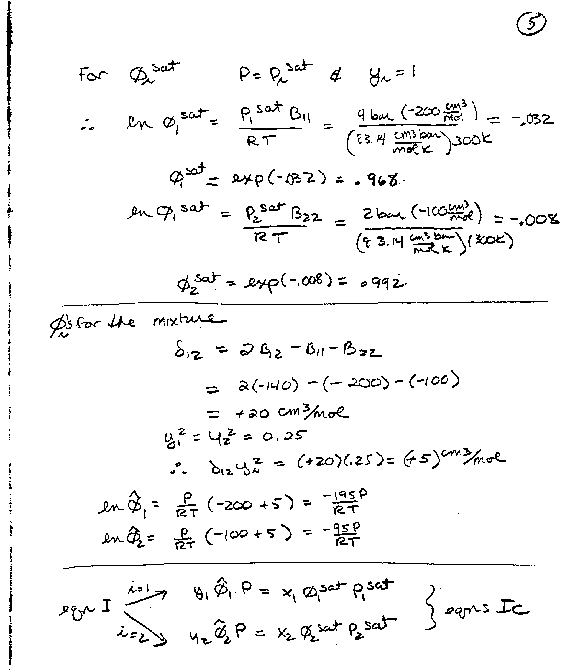 5
For φᵢ^sat P = Pᵢ^sat & yᵢ = 1
∴ ln φ₁^sat = P₁^sat B₁₁ / RT = 4 bar (-200 cm³/mol) / (83.14 cm³ bar/mol K) 300K = -.032
φ₁^sat = exp(-.032) = .968
ln φ₁^sat = P₂^sat B₂₂ / RT = 2 bar (-100 cm³/mol) / (83.14 cm³ bar/mol K)(300K) = -.008
φ₂^sat = exp(-.008) = .992
φᵢ's for the mixture
δ₁₂ = 2B₁₂ - B₁₁ - B₂₂
= 2(-140) - (-200) - (-100)
= +20 cm³/mol
y₁² = y₂² = 0.25
∴ δ₁₂yᵢ² = (+20)(.25) = (+5) cm³/mol
ln φ̂₁ = P/RT (-200 + 5) = -195P/RT
ln φ̂₂ = P/RT (-100 + 5) = -95P/RT
eqn I i=1 y₁ φ̂₁ P = x₁ φ₁^sat P₁^sat
i=2 y₂ φ̂₂ P = x₂ φ₂^sat P₂^sat } eqns Ic